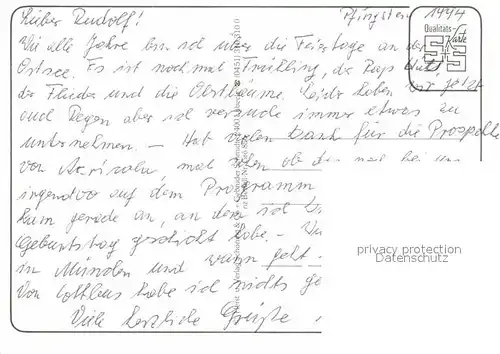 Lieber Rudolf! Pfingsten 1994
Wie alle Jahre bin ich über die Feiertage an der
Ostsee. Es ist noch mal Frühling, der Raps blüht
der Flieder und die Obstbäume. Leider haben wir jetzt
auch Regen aber ich versuche immer etwas zu
unternehmen. – Hab vielen Dank für die Prospekte
von mal sehen ob das mal bei uns
irgendwo auf dem Programm
kam gerade an, an dem ich
Geburtstag gedacht habe. –
in München und wann geht
Von Cottbus habe ich nichts
Viele herzliche Grüße
Qualitäts-
Karte
privacy protection
Dansmabesace.com